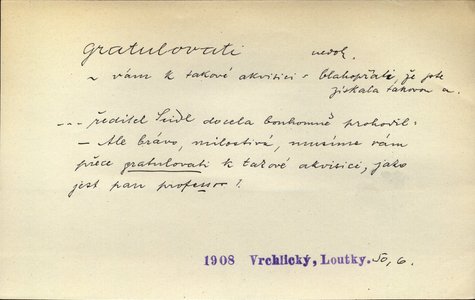 gratulovati nedok.
~ vám k takové akvisici = blahopřáti, že jste
získala takovou a.
--- ředitel Seidl docela bonhomně prohodil:
— Ale brávo, milostivá, musíme vám
přece gratulovati k takové akvisici, jako
jest pan professor!
1908 Vrchlický, Loutky. 50, 6.